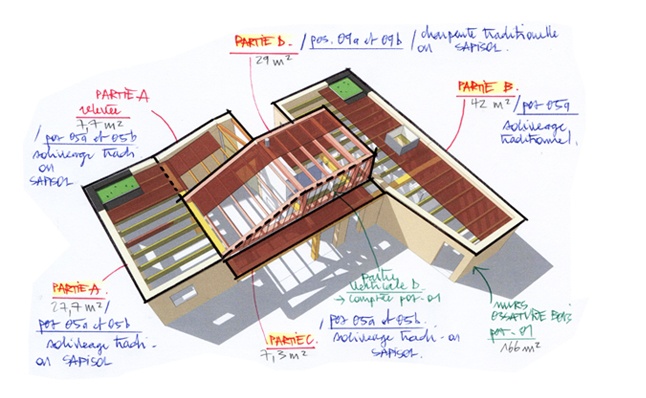 PARTIE D. / pos. 09a et 09b / charpente traditionelle
29 m² ou SAPISOL.
PARTIE A
relevée
7,7 m²
/ pos 05a et 05b
solivage tradi
ou
SAPISOL
PARTIE B.
42 m² / pos 05a
solivage
traditionnel.
PARTIE A.
27,7 m² /
pos 05a et 05b
solivage tradi-
ou SAPISOL
PARTIE C. / pos 05a et 05b.
7,3 m² solivage tradi- ou
SAPISOL.
partie
verticale D
→ comptée pos-01
MURS
OSSATURE BOIS
pos-01
166 m²